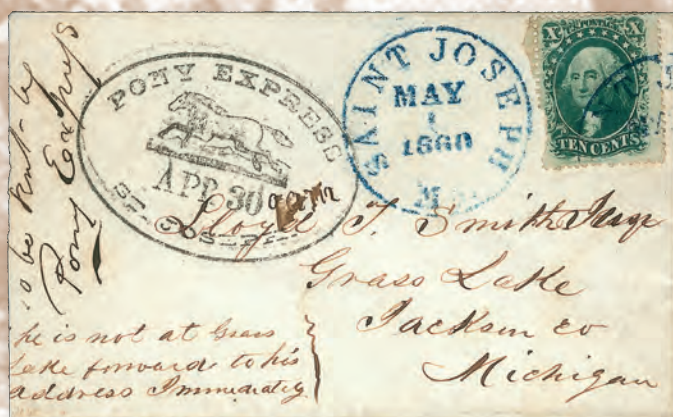 to be sent by
Pony Express
PONY EXPRESS
APR 30
ST. JOSEPH
SAINT JOSEPH
MAY
1
1860
Mo
U.S. POSTAGE
X X
TEN CENTS
Lloyd T. Smith
Grass Lake
Jackson co
Michigan
he is not at Grass
Lake forward to his
address Immediately